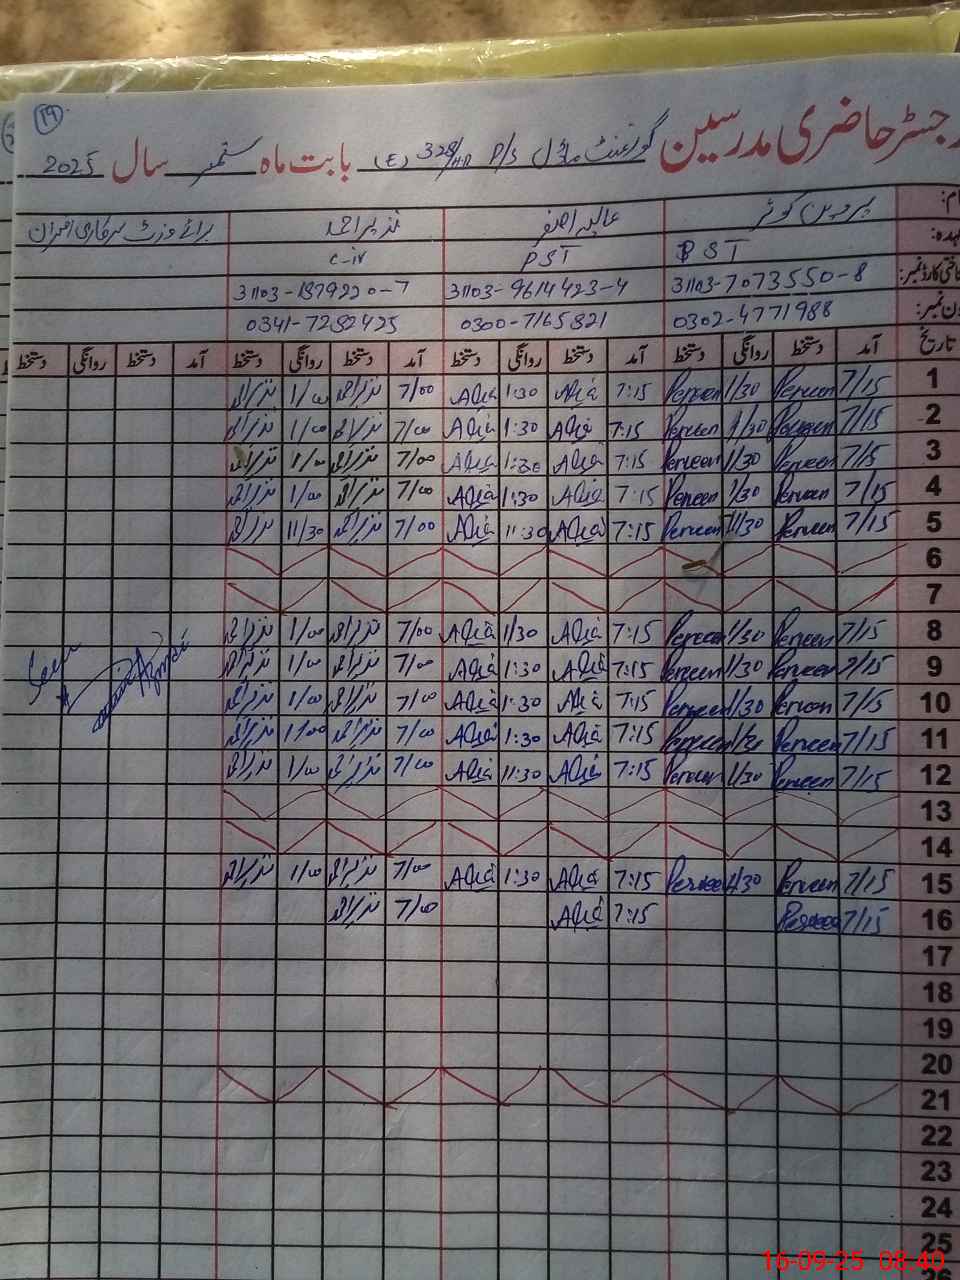 19
رجسٹر حاضری مدرسین گورنمنٹ ماڈل P/S 328/HR (E) بابت ماہ ستمبر سال 2025
نام: پروین کوثر عالیہ اصغر نذیر احمد برائے وزٹ سرکاری افسران
عہدہ: PST PST C-iv
شناختی کارڈ نمبر: 31103-7073550-8 31103-9614423-4 31103-1379220-7
فون نمبر: 0302-4771988 0300-7165821 0341-7282425
تاریخ آمد دستخط روانگی دستخط آمد دستخط روانگی دستخط آمد دستخط روانگی دستخط آمد دستخط روانگی دستخط
1 7/15 Perveen 1/30 Perveen 7:15 Alia 1:30 Alia 7/00 نذیر احمد 1/00 نذیر احمد
2 7/15 Perveen 1/30 Perveen 7:15 Alia 1:30 Alia 7/00 نذیر احمد 1/00 نذیر احمد
3 7/15 Perveen 1/30 Perveen 7:15 Alia 1:30 Alia 7/00 نذیر احمد 1/00 نذیر احمد
4 7/15 Perveen 1/30 Perveen 7:15 Alia 1:30 Alia 7/00 نذیر احمد 1/00 نذیر احمد
5 7/15 Perveen 11/30 Perveen 7:15 Alia 11:30 Alia 7/00 نذیر احمد 11/30 نذیر احمد
6
7
8 7/15 Perveen 1/30 Perveen 7:15 Alia 1/30 Alia 7/00 نذیر احمد 1/00 نذیر احمد
9 7/15 Perveen 1/30 Perveen 7:15 Alia 1:30 Alia 7/00 نذیر احمد 1/00 نذیر احمد
10 7/15 Perveen 1/30 Perveen 7:15 Alia 1:30 Alia 7/00 نذیر احمد 1/00 نذیر احمد
11 7/15 Perveen Perveen 7:15 Alia 1:30 Alia 7/00 نذیر احمد 1/00 نذیر احمد
12 7/15 Perveen 1/30 Perveen 7:15 Alia 11:30 Alia 7/00 نذیر احمد 1/00 نذیر احمد
13
14
15 7/15 Perveen 1/30 Perveen 7:15 Alia 1:30 Alia 7/00 نذیر احمد 1/00 نذیر احمد
16 7/15 Perveen 7:15 Alia 7/00 نذیر احمد
17
18
19
20
21
22
23
24
25
26
16-09-25 08:40